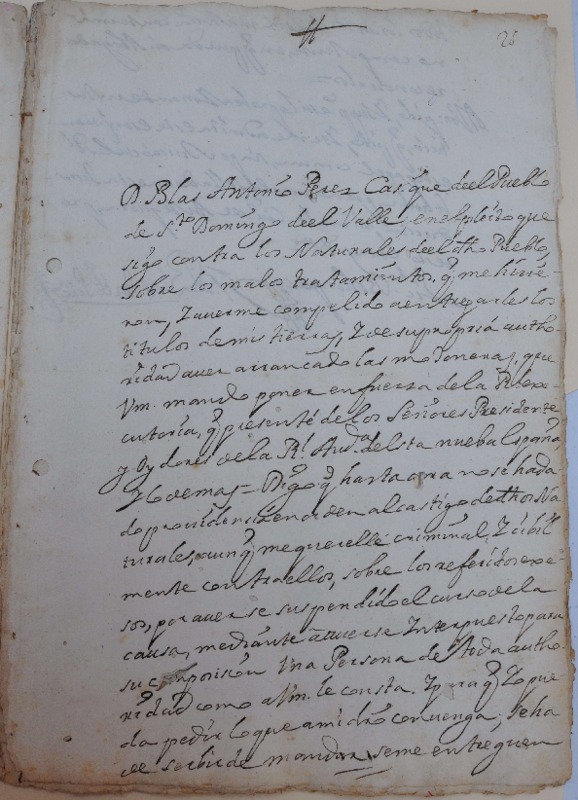 26
D. Blas Antonio Perez Casique deel Pueblo
de Sto. Domingo deel Valle; en el pleito que
sigo contra los Naturales deel dho Pueblo,
sobre los malos tratamientos, q̃ me hisie-
ron, Y averme compelido a entregarles los
titulos de mis tierras, Y de su propria autho-
ridad aver arrancado las mojoneras, que
Vm. mando poner en fuerza de la Rl. exe-
cutoria, q̃ presenté de los Señores Presidente
y Oydores de la Rl. Auda. desta nueba España
Y lo demas = Digo q̃ hasta ora no se ha da-
do providencia en orden al castigo de dhos Na-
turales, aunq̃ me querellé criminal, Y cibil-
mente contra ellos, sobre los referidos exce-
sos, por averse suspendido el curso de la
causa, mediante a averse Interpuesto para
su composision Vna Persona de toda autho-
ridad como a Vm. le consta. Y para q̃ Yo pue-
da pedir lo que a mi dro convenga; se ha
de serbir de mandar se me entreguen